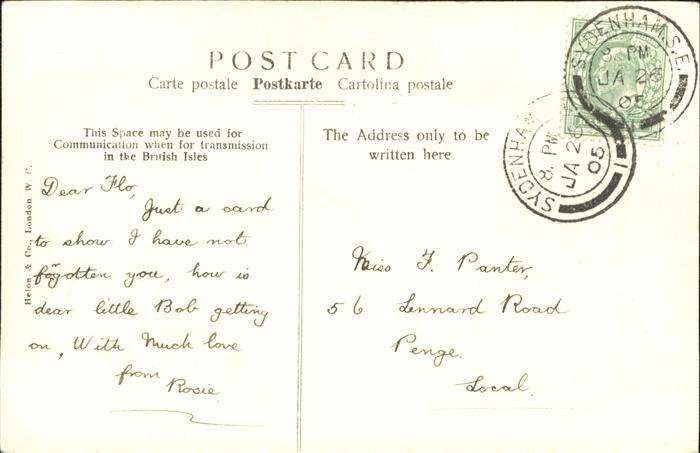 POST CARD
Carte postale Postkarte Cartolina postale
This Space may be used for
Communication when for transmission
in the British Isles
Dear Flo,
Just a card
to show I have not
forgotten you, how is
dear little Bob getting
on, With Much love
from
Rosie.
The Address only to be
written here
Miss F. Panter,
56 Lennard Road
Penge.
Local.
SYDENHAM.S.E.
8. PM
JA 26
05
SYDENHAM
8. PM
JA 26
05
Helon & Co., London W. C.